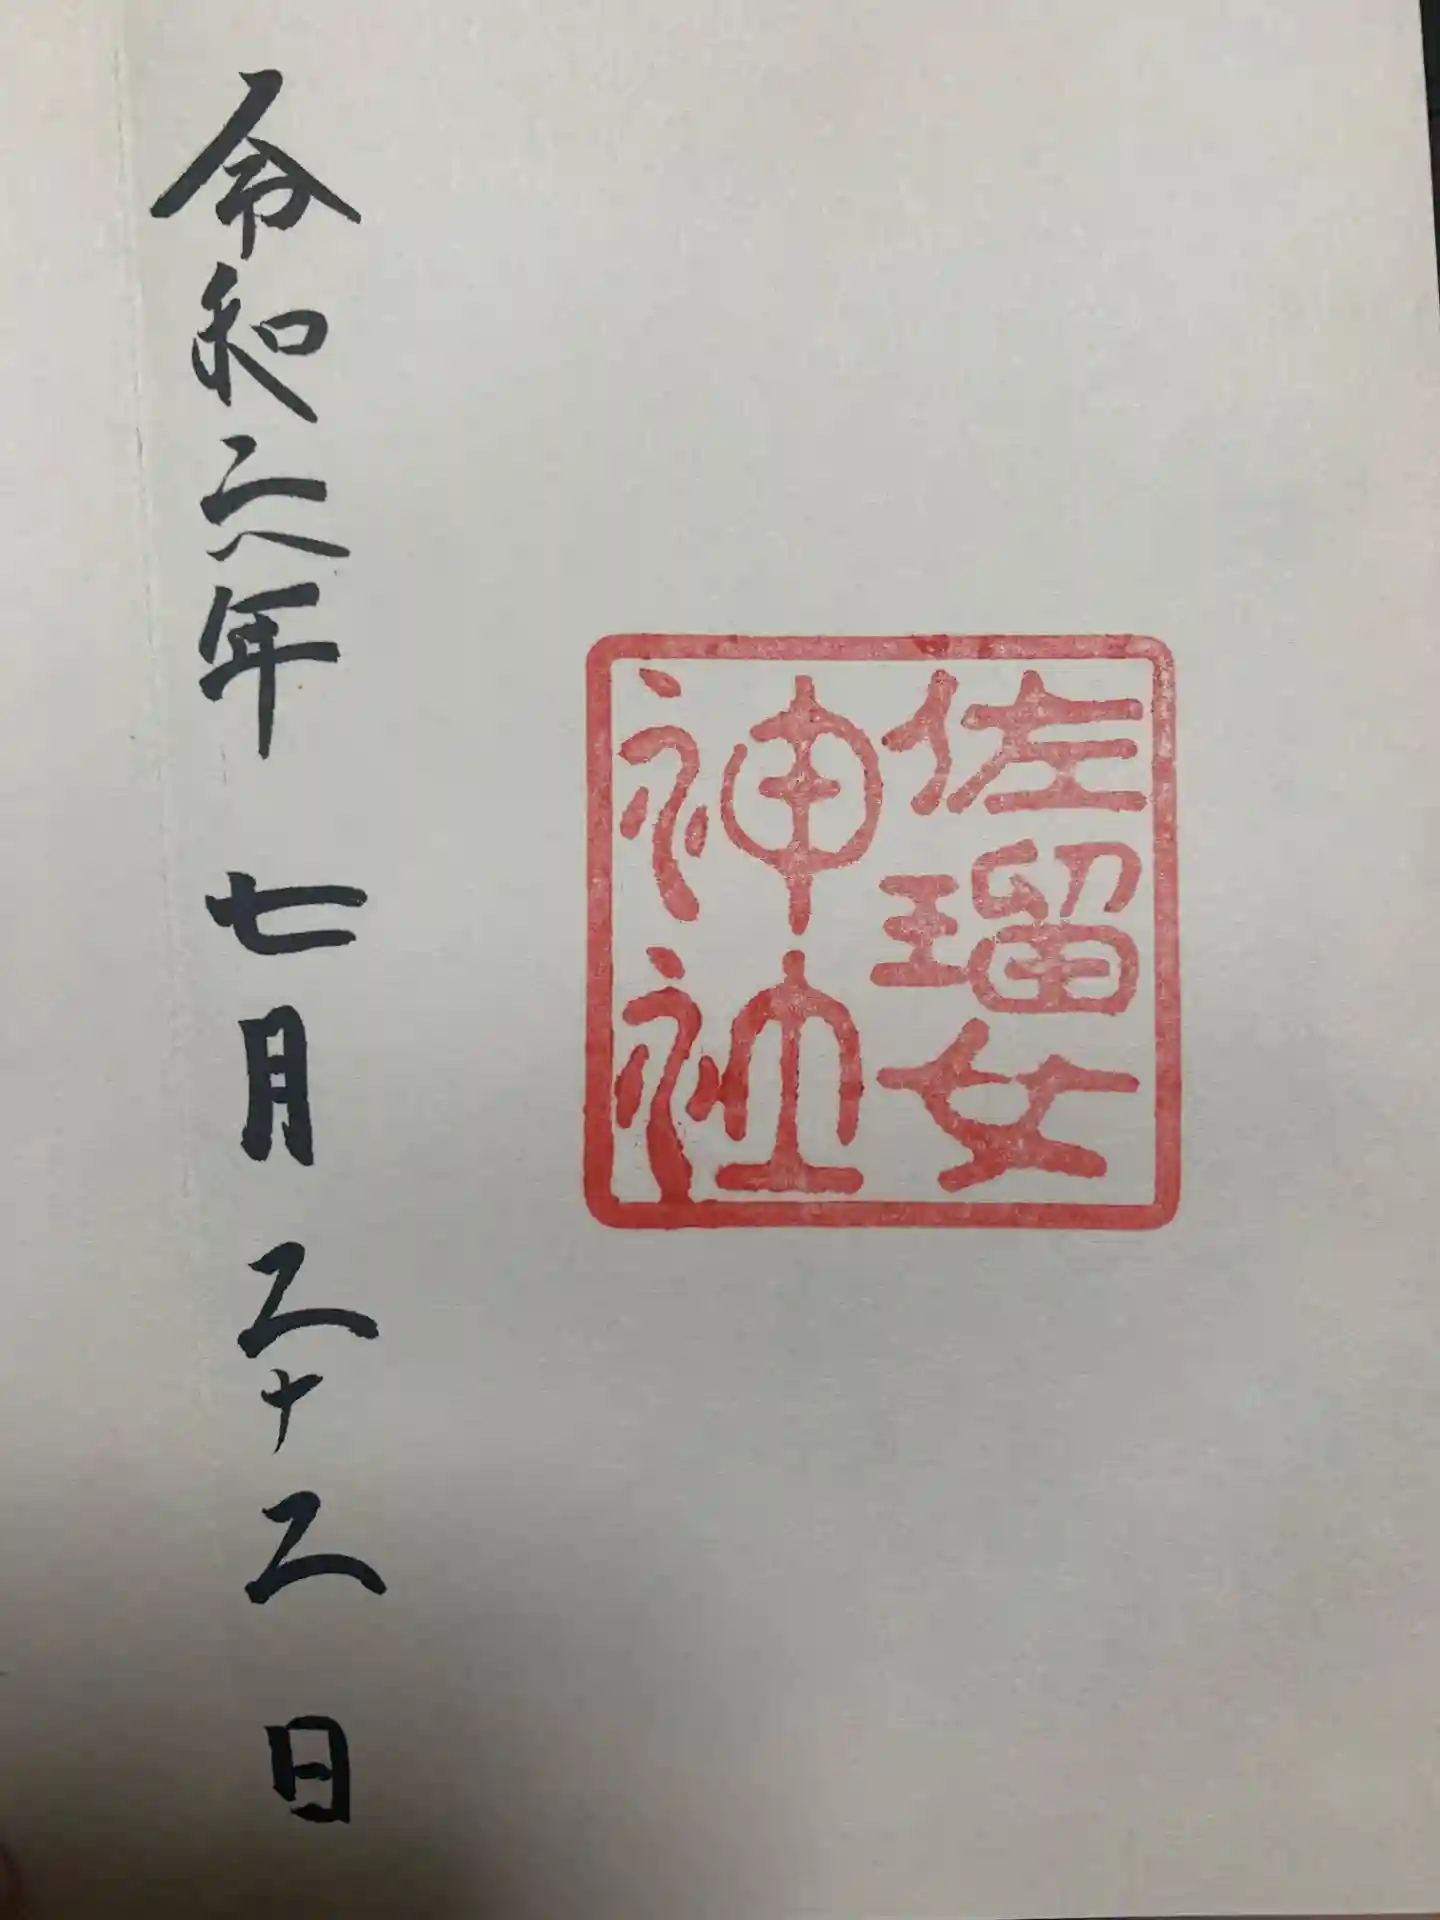 佐瑠女
神社
令和六年 七月二十二日